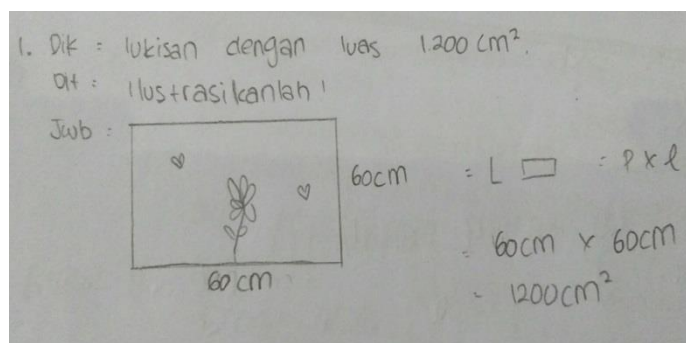 1. Dik : lukisan dengan luas 1.200 cm².
Dit : Ilustrasikanlah !
Jwb :
60cm = L ▭ : P x l
60 cm
= 60cm x 60cm
= 1200cm²